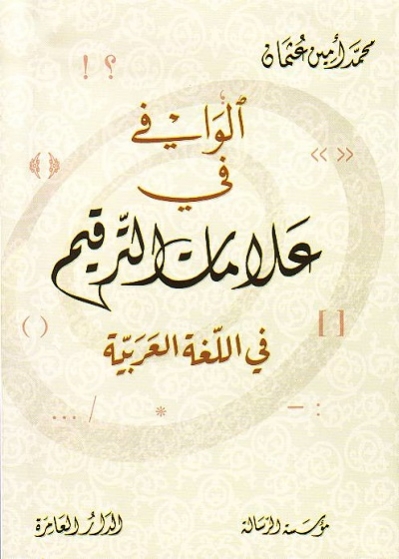 محمد أمين عثمان
؟ !
الوافي
« »
﴿ ﴾
في
علامات الترقيم
( )
[ ]
في اللغة العربية
: –
*
/ ...
مؤسسة الرسالة
الدار العامرة